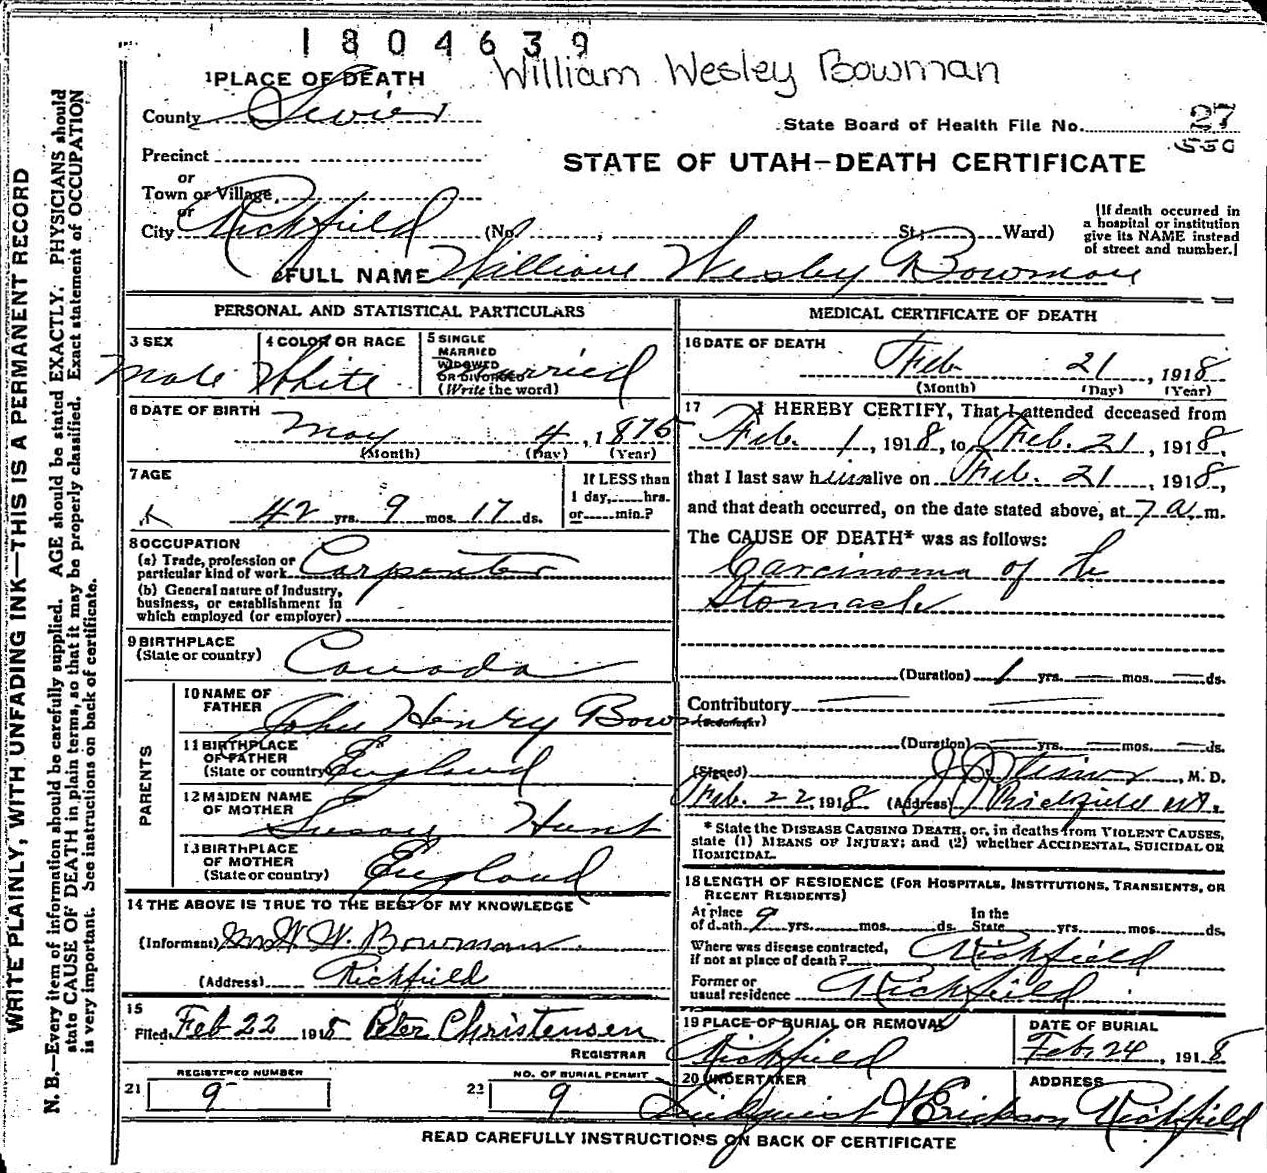 1804639
William Wesley Bowman
1 PLACE OF DEATH
County Sevier
State Board of Health File No. 27
550
Precinct
STATE OF UTAH—DEATH CERTIFICATE
or
Town or Village
or
City Richfield (No. , St; Ward)
[If death occurred in
a hospital or institution
give its NAME instead
of street and number.]
2 FULL NAME William Wesley Bowman
PERSONAL AND STATISTICAL PARTICULARS
3 SEX
Male
4 COLOR OR RACE
White
5 SINGLE
MARRIED
WIDOWED
OR DIVORCED
(Write the word)
Married
6 DATE OF BIRTH
May 4, 1875
(Month) (Day) (Year)
7 AGE
42 yrs. 9 mos. 17 ds.
If LESS than
1 day, hrs.
or min.?
8 OCCUPATION
(a) Trade, profession or
particular kind of work Carpenter
(b) General nature of industry,
business, or establishment in
which employed (or employer)
9 BIRTHPLACE
(State or country) Canada
PARENTS
10 NAME OF
FATHER John Henry Bow
11 BIRTHPLACE
OF FATHER
(State or country) England
12 MAIDEN NAME
OF MOTHER Susan Hunt
13 BIRTHPLACE
OF MOTHER
(State or country) England
14 THE ABOVE IS TRUE TO THE BEST OF MY KNOWLEDGE
(Informant) W. Bowman
(Address) Richfield
15
Filed Feb 22 1918 Peter Christensen
REGISTRAR
REGISTERED NUMBER
21 9
NO. OF BURIAL PERMIT
22 9
MEDICAL CERTIFICATE OF DEATH
16 DATE OF DEATH
Feb 21, 1918
(Month) (Day) (Year)
17 I HEREBY CERTIFY, That I attended deceased from
Feb. 1, 1918, to Feb. 21, 1918,
that I last saw him alive on Feb. 21, 1918,
and that death occurred, on the date stated above, at 7 a.m.
The CAUSE OF DEATH* was as follows:
Carcinoma of the
Stomach
(Duration) 1 yrs. — mos. — ds.
Contributory — —
(Secondary)
(Duration) — yrs. — mos. — ds.
(Signed) , M. D.
Feb. 22 1918 (Address) Richfield Ut.
* State the DISEASE CAUSING DEATH, or, in deaths from VIOLENT CAUSES,
state (1) MEANS OF INJURY; and (2) whether ACCIDENTAL, SUICIDAL OR
HOMICIDAL.
18 LENGTH OF RESIDENCE (FOR HOSPITALS, INSTITUTIONS, TRANSIENTS, OR
RECENT RESIDENTS)
At place In the
of death 9 yrs. mos. ds. State yrs. mos. ds.
Where was disease contracted,
if not at place of death? Richfield
Former or
usual residence Richfield
19 PLACE OF BURIAL OR REMOVAL
Richfield
DATE OF BURIAL
Feb. 24, 1918
20 UNDERTAKER
Lindquist & Erickson
ADDRESS
Richfield
READ CAREFULLY INSTRUCTIONS ON BACK OF CERTIFICATE
WRITE PLAINLY, WITH UNFADING INK—THIS IS A PERMANENT RECORD
N. B.—Every item of information should be carefully supplied. AGE should be stated EXACTLY. PHYSICIANS should
state CAUSE OF DEATH in plain terms, so that it may be properly classified. Exact statement of OCCUPATION
is very important. See instructions on back of certificate.